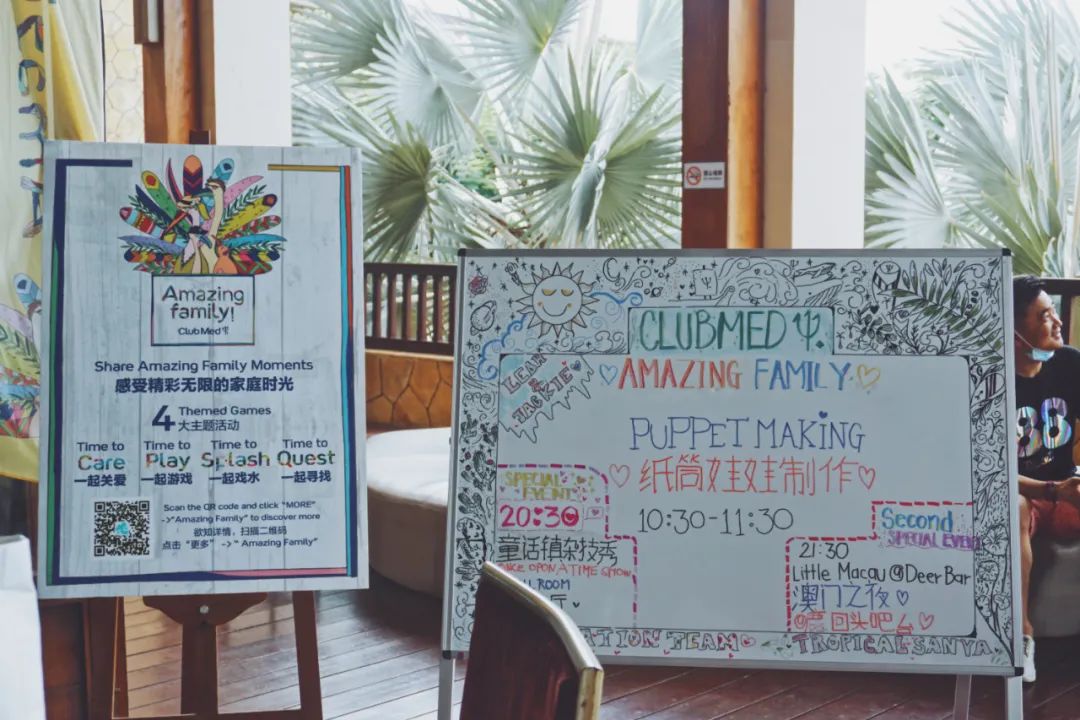 Amazing
family!
Club Med
Share Amazing Family Moments
感受精彩无限的家庭时光
4 Themed Games
大主题活动
Time to Care
一起关爱
Time to Play
一起游戏
Time to Splash
一起戏水
Time to Quest
一起寻找
Scan the QR code and click "MORE"
->"Amazing Family" to discover more
欲知详情，扫描二维码
点击"更多" ->" Amazing Family"
CLUBMED
AMAZING FAMILY
LEAH
& JACKIE
PUPPET MAKING
纸筒娃娃制作
10:30-11:30
SPECIAL
EVENT
20:30
童话镇杂技秀
ONCE UPON A TIME SHOW
ROOM
厅
Second
SPECIAL EVENT
21:30
Little Macau @ Deer Bar
澳门之夜
@鹿回头吧台
TION TEAM
TROPICAL SANYA
88